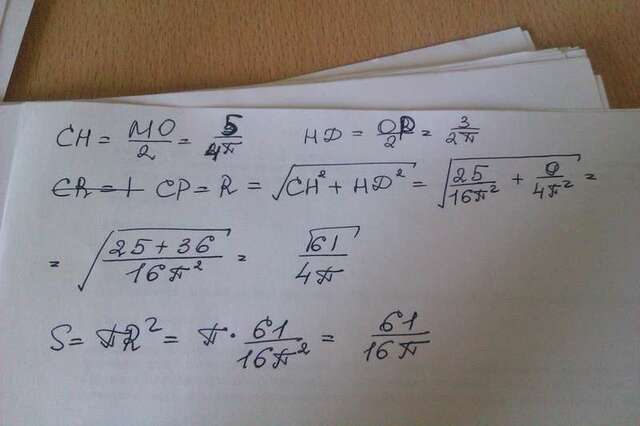 CH = MO/2 = 5/4π HD = OP/2 = 3/2π
CR = 1 CP = R = √(CH² + HD²) = √(25/16π² + 9/4π²) =
= √((25 + 36)/16π²) = √61/4π
S = πR² = π · 61/16π² = 61/16π